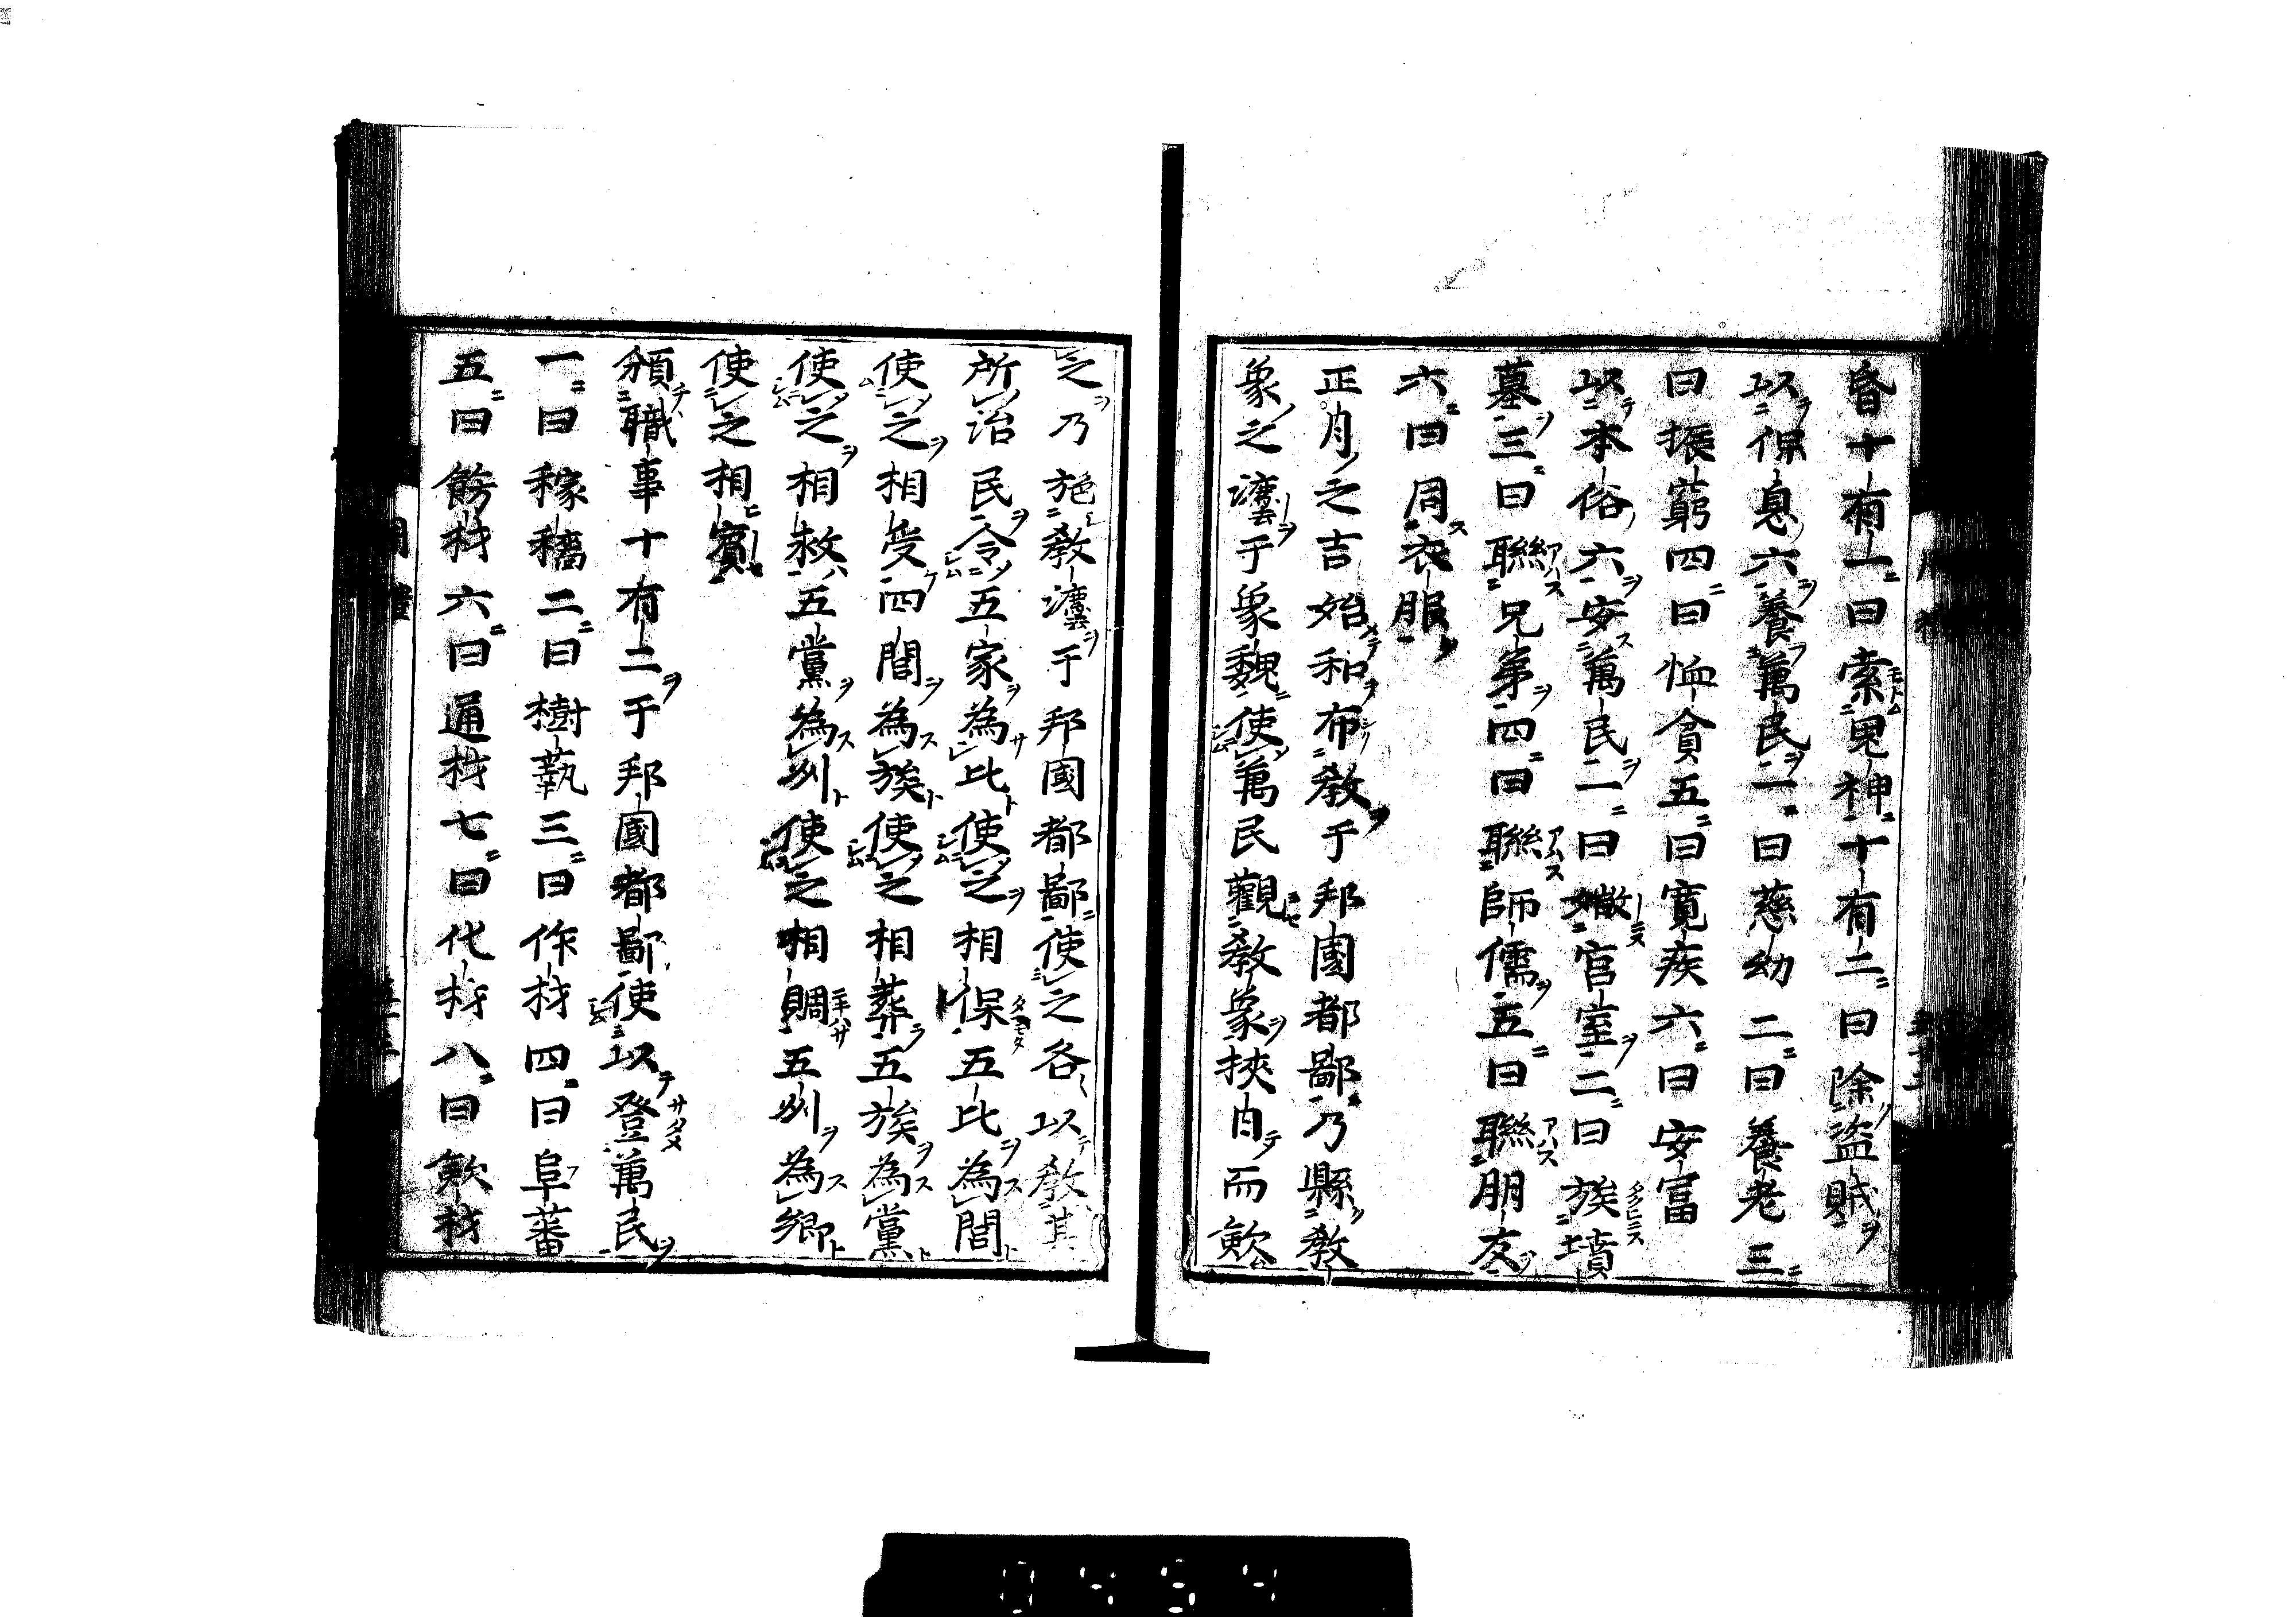 昏十有一曰索鬼神十有二曰除盜賊
以保息六養萬民一曰慈幼二曰養老三
曰振窮四曰恤貧五曰寬疾六曰安富
以本俗六安萬民一曰媺宮室二曰族墳
墓三曰聯兄弟四曰聯師儒五曰聯朋友
六曰同衣服
正月之吉始和布教于邦國都鄙乃縣教
象之灋于象魏使萬民觀教象挾日而斂
之乃施教灋于邦國都鄙使之各以教其
所治民令五家為比使之相保五比為閭
使之相受四閭為族使之相葬五族為黨
使之相救五黨為州使之相賙五州為鄉
使之相賓
頒職事十有二于邦國都鄙使以登萬民
一曰稼穡二曰樹蓺三曰作材四曰阜蕃
五曰飭材六曰通材七曰化材八曰斂材
0454